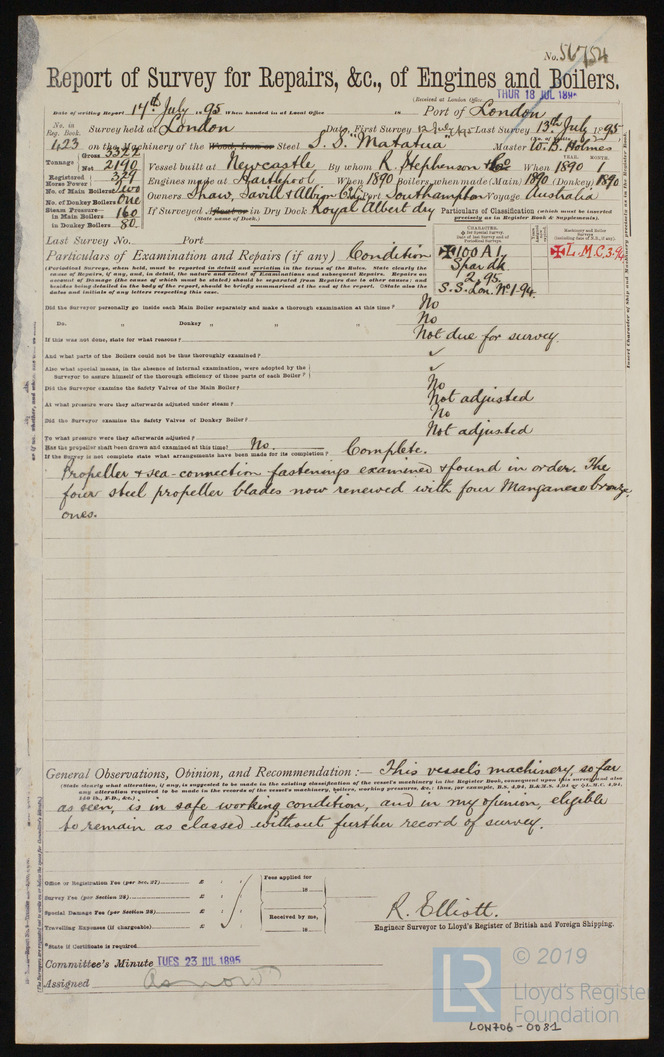 No. 56754
Report of Survey for Repairs, &c., of Engines and Boilers.
(Received at London Office THUR 18 JUL 1895
Date of writing Report 17th July 95 When handed in at Local Office 18 Port of London
No. in Reg. Book. Survey held at London Date, First Survey 12 July 95 Last Survey 13th July 1895
423 on the Machinery of the Wood, Iron or Steel S. S. "Matatua" Master W. B. Holmes
Tonnage Gross 3322 Net 2190
Vessel built at Newcastle By whom R. Stephenson & Co When 1890 1
YEAR. MONTH.
Registered Horse Power 329
Engines made at Hartlepool When 1890 Boilers, when made (Main) 1890 (Donkey) 1890
No. of Main Boilers Two
No. of Donkey Boilers One
Owners Shaw, Savill & Albion Co Ld Port Southampton Voyage Australia
Steam Pressure in Main Boilers 160
in Donkey Boilers 80
If Surveyed Afloat or in Dry Dock Royal Albert dry
(State name of Dock.)
Particulars of Classification (which must be inserted precisely as in Register Book & Supplements).
Last Survey No. Port
Particulars of Examination and Repairs (if any) Condition
CHARACTER.
100A1
Spar dk
2,95
S.S. Lon. No 1-94
Machinery and Boiler Surveys
L.M.C. 3,94
(Periodical Surveys, when held, must be reported in detail and seriatim in the terms of the Rules. State clearly the cause of Repairs, if any, and, in detail, the nature and extent of Examinations and subsequent Repairs. Repairs on account of Damage (the cause of which must be stated) should be separated from Repairs due to other causes; and besides being detailed in the body of the report, should be briefly summarised at the end of the report. State also the dates and initials of any letters respecting this case.
Did the Surveyor personally go inside each Main Boiler separately and make a thorough examination at this time? No
Do. " Donkey " " " " No
If this was not done, state for what reasons? Not due for survey
And what parts of the Boilers could not be thus thoroughly examined? ✓
Also what special means, in the absence of internal examination, were adopted by the Surveyor to assure himself of the thorough efficiency of those parts of each Boiler? ✓
Did the Surveyor examine the Safety Valves of the Main Boiler? No
At what pressure were they afterwards adjusted under steam? Not adjusted
Did the Surveyor examine the Safety Valves of Donkey Boiler? No
To what pressure were they afterwards adjusted? Not adjusted
Has the propeller shaft been drawn and examined at this time? No.
If the Survey is not complete state what arrangements have been made for its completion? Complete.
Propeller & sea-connection fastenings examined & found in order. The
four steel propeller blades now renewed with four Manganese bronze
ones.
General Observations, Opinion, and Recommendation:— This vessel's machinery, so far
(State clearly what alteration, if any, is suggested to be made in the existing classification of the vessel's machinery in the Register Book, consequent upon this survey, and also any alteration required to be made in the records of the vessel's machinery, boilers, working pressures, &c.; thus, for example, B.S. 4,94, B.&M.S. 4,94 or L.M.C. 4,94, 140 lb., F.D., &c.)
as seen, is in safe working condition, and in my opinion, eligible
to remain as classed without further record of survey.
Office or Registration Fee (per Sec. 27) £ : :
Survey Fee (per Section 28) £ : :
Special Damage Fee (per Section 28) £ : :
Travelling Expenses (if chargeable) £ : :
Fees applied for
18
Received by me,
18
*State if Certificate is required
R. Elliott.
Engineer Surveyor to Lloyd's Register of British and Foreign Shipping.
Committee's Minute TUES 23 JUL 1895
Assigned As now
LR
© 2019
Lloyd's Register
Foundation
LON706-0081